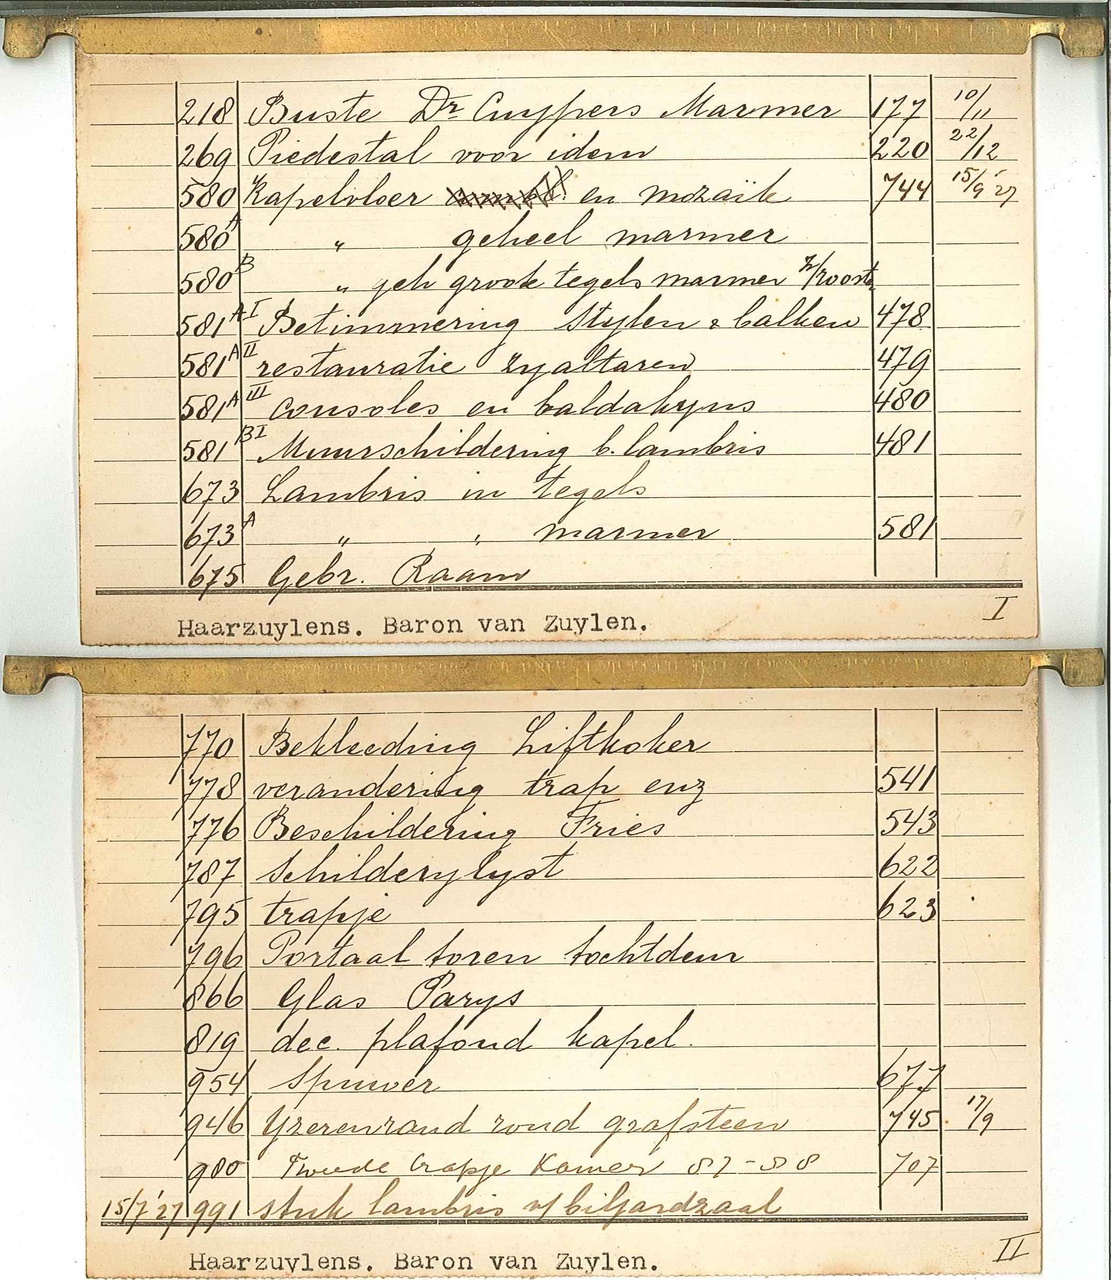 218 Buste Dr Cuypers Marmer 177 10/11
269 Piedestal voor idem 220 22/12
580 Kapelvloer en mozaïk 744 15/9 '27
580A " geheel marmer
580B " geh groote tegels marmer z/roost
581AI Betimmering Stylen & balken 478
581AII restauratie zyaltaren 479
581AIII consoles en baldakyns 480
581BI Muurschildering b. lambris 481
673 Lambris in tegels
673A " " marmer 581
675 Gebr. Raam
I
Haarzuylens. Baron van Zuylen.
770 Bekleeding Liftkoker
778 verandering trap enz 541
776 Beschildering Fries 543
787 Schilderylyst 622
795 trapje 623
796 Portaal toren tochtdeur
866 Glas Parys
819 dec. plafond kapel.
954 Spuwer 677
946 Yzerenrand rond grafsteen 745 17/9
980 Tweede trapje Kamer 87-88 707
15/7 '27 991 stuk lambris v/ biljardzaal
II
Haarzuylens. Baron van Zuylen.